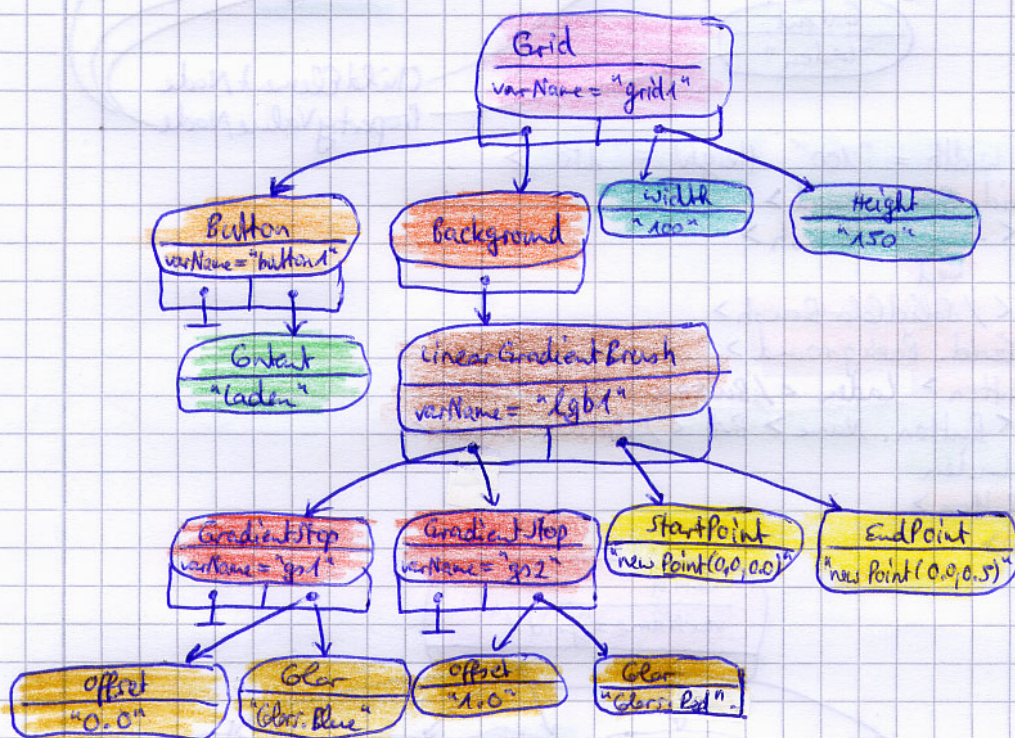 Grid
varName = "grid1"
Button
varName="button1"
Background
Width
"100"
Height
"150"
Content
"Laden"
LinearGradientBrush
varName = "lgb1"
GradientStop
varName="gs1"
GradientStop
varName="gs2"
StartPoint
"new Point(0.0,0.0)"
EndPoint
"new Point(0.0,0.5)"
Offset
"0.0"
Color
"Colors.Blue"
Offset
"1.0"
Color
"Colors.Red"